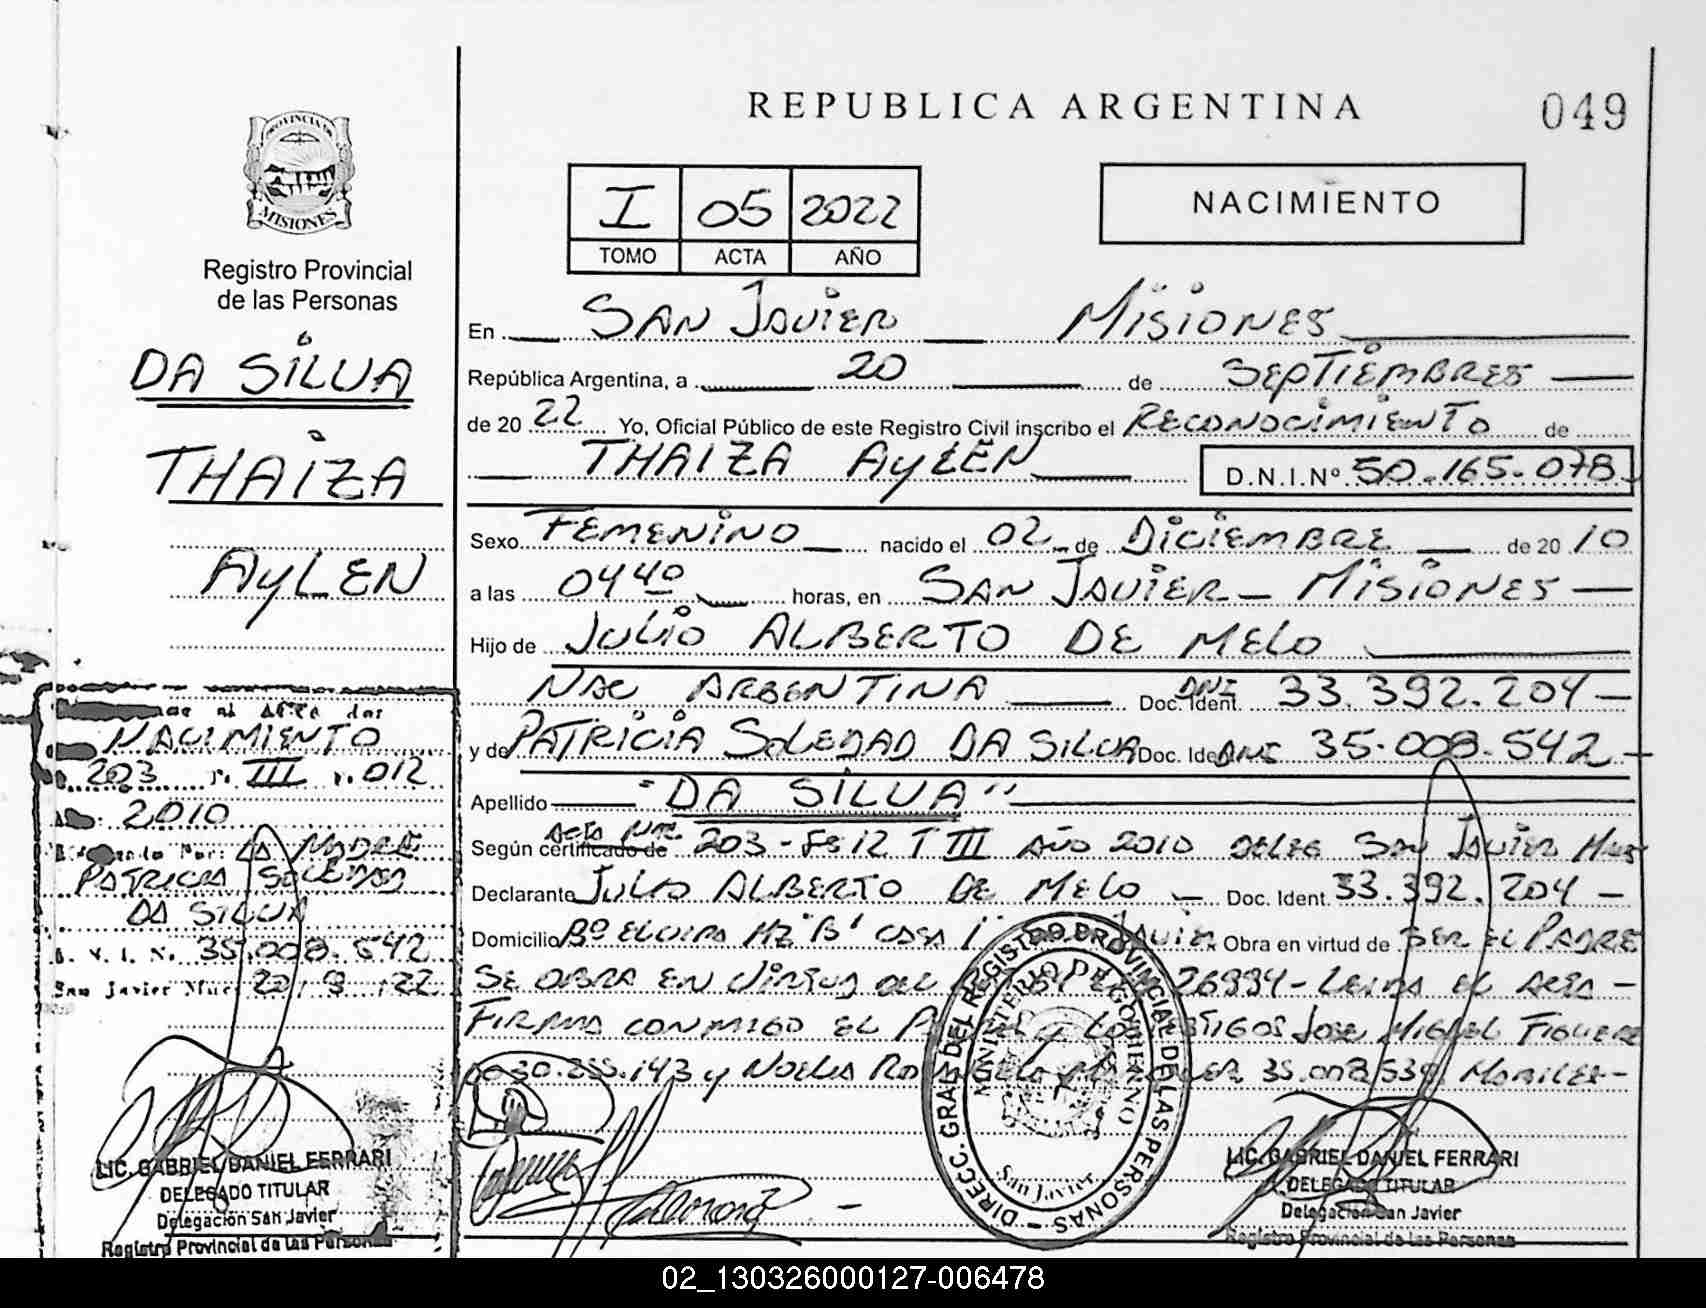 REPUBLICA ARGENTINA
049
PROVINCIA DE
MISIONES
Registro Provincial
de las Personas
I 05 2022
TOMO ACTA AÑO
NACIMIENTO
DA SILVA
THAIZA
AYLEN
En SAN JAVIER MISIONES
República Argentina, a 20 de SEPTIEMBRES
de 20 22 Yo, Oficial Público de este Registro Civil inscribo el RECONOCIMIENTO de
THAIZA AYLEN D.N.I.Nº 50.165.078
Sexo FEMENINO nacido el 02 de DICIEMBRE de 20 10
a las 04 40 horas, en SAN JAVIER - MISIONES
Hijo de JULIO ALBERTO DE MELO
NAC ARGENTINA Doc. Ident. DNI 33.392.204
y de PATRICIA SOLEDAD DA SILVA Doc. Ident. DNI 35.008.542
Apellido "DA SILVA"
Según certificado de ACTA 203 - Fº 12 T III AÑO 2010 DELEG SAN JAVIER
Declarante JULIO ALBERTO DE MELO Doc. Ident. 33.392.204
Domicilio Bº ELVIRA MZ "B" CASA JAVIER Obra en virtud de SER EL PADRE
SE OBRA EN VIRTUD DEL 26994 - LEIDA EL ACTA
FIRMA CONMIGO EL Y LOS TESTIGOS JOSE MIGUEL
143 y NOELIA 35.008.539
al Acta de:
NACIMIENTO
203 III 012
2010
Por: LA MADRE
PATRICIA SOLEDAD
DA SILVA
D. N. I. N. 35.008.542
San Javier 20 9 22
DIRECC. GRAL. DEL REGISTRO PROVINCIAL DE LAS PERSONAS
MINISTERIO DE GOBIERNO
San Javier
LIC. GABRIEL DANIEL FERRARI
DELEGADO TITULAR
Delegación San Javier
Registro Provincial de las Personas
LIC. GABRIEL DANIEL FERRARI
DELEGADO TITULAR
Delegación San Javier
Registro Provincial de las Personas
02_130326000127-006478